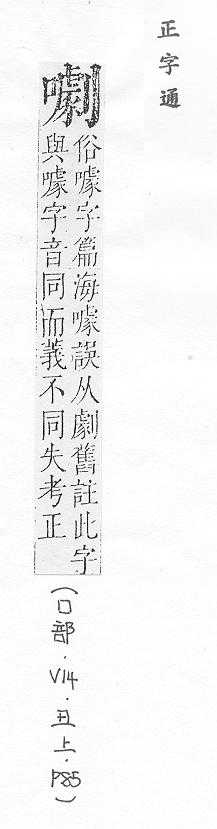 正字通
俗噱字篇海噱誤从劇舊註此字
與噱字音同而義不同失考正
（口部．V14．丑上．P85）